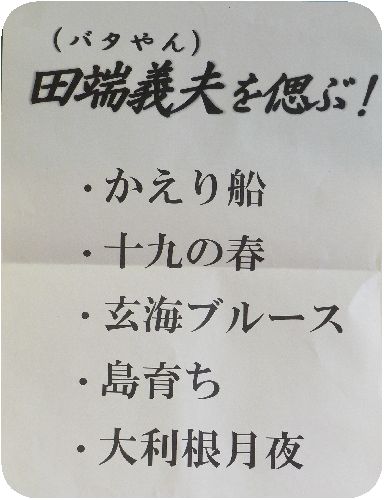 (バタやん)
田端義夫を偲ぶ!
・かえり船
・十九の春
・玄海ブルース
・島育ち
・大利根月夜